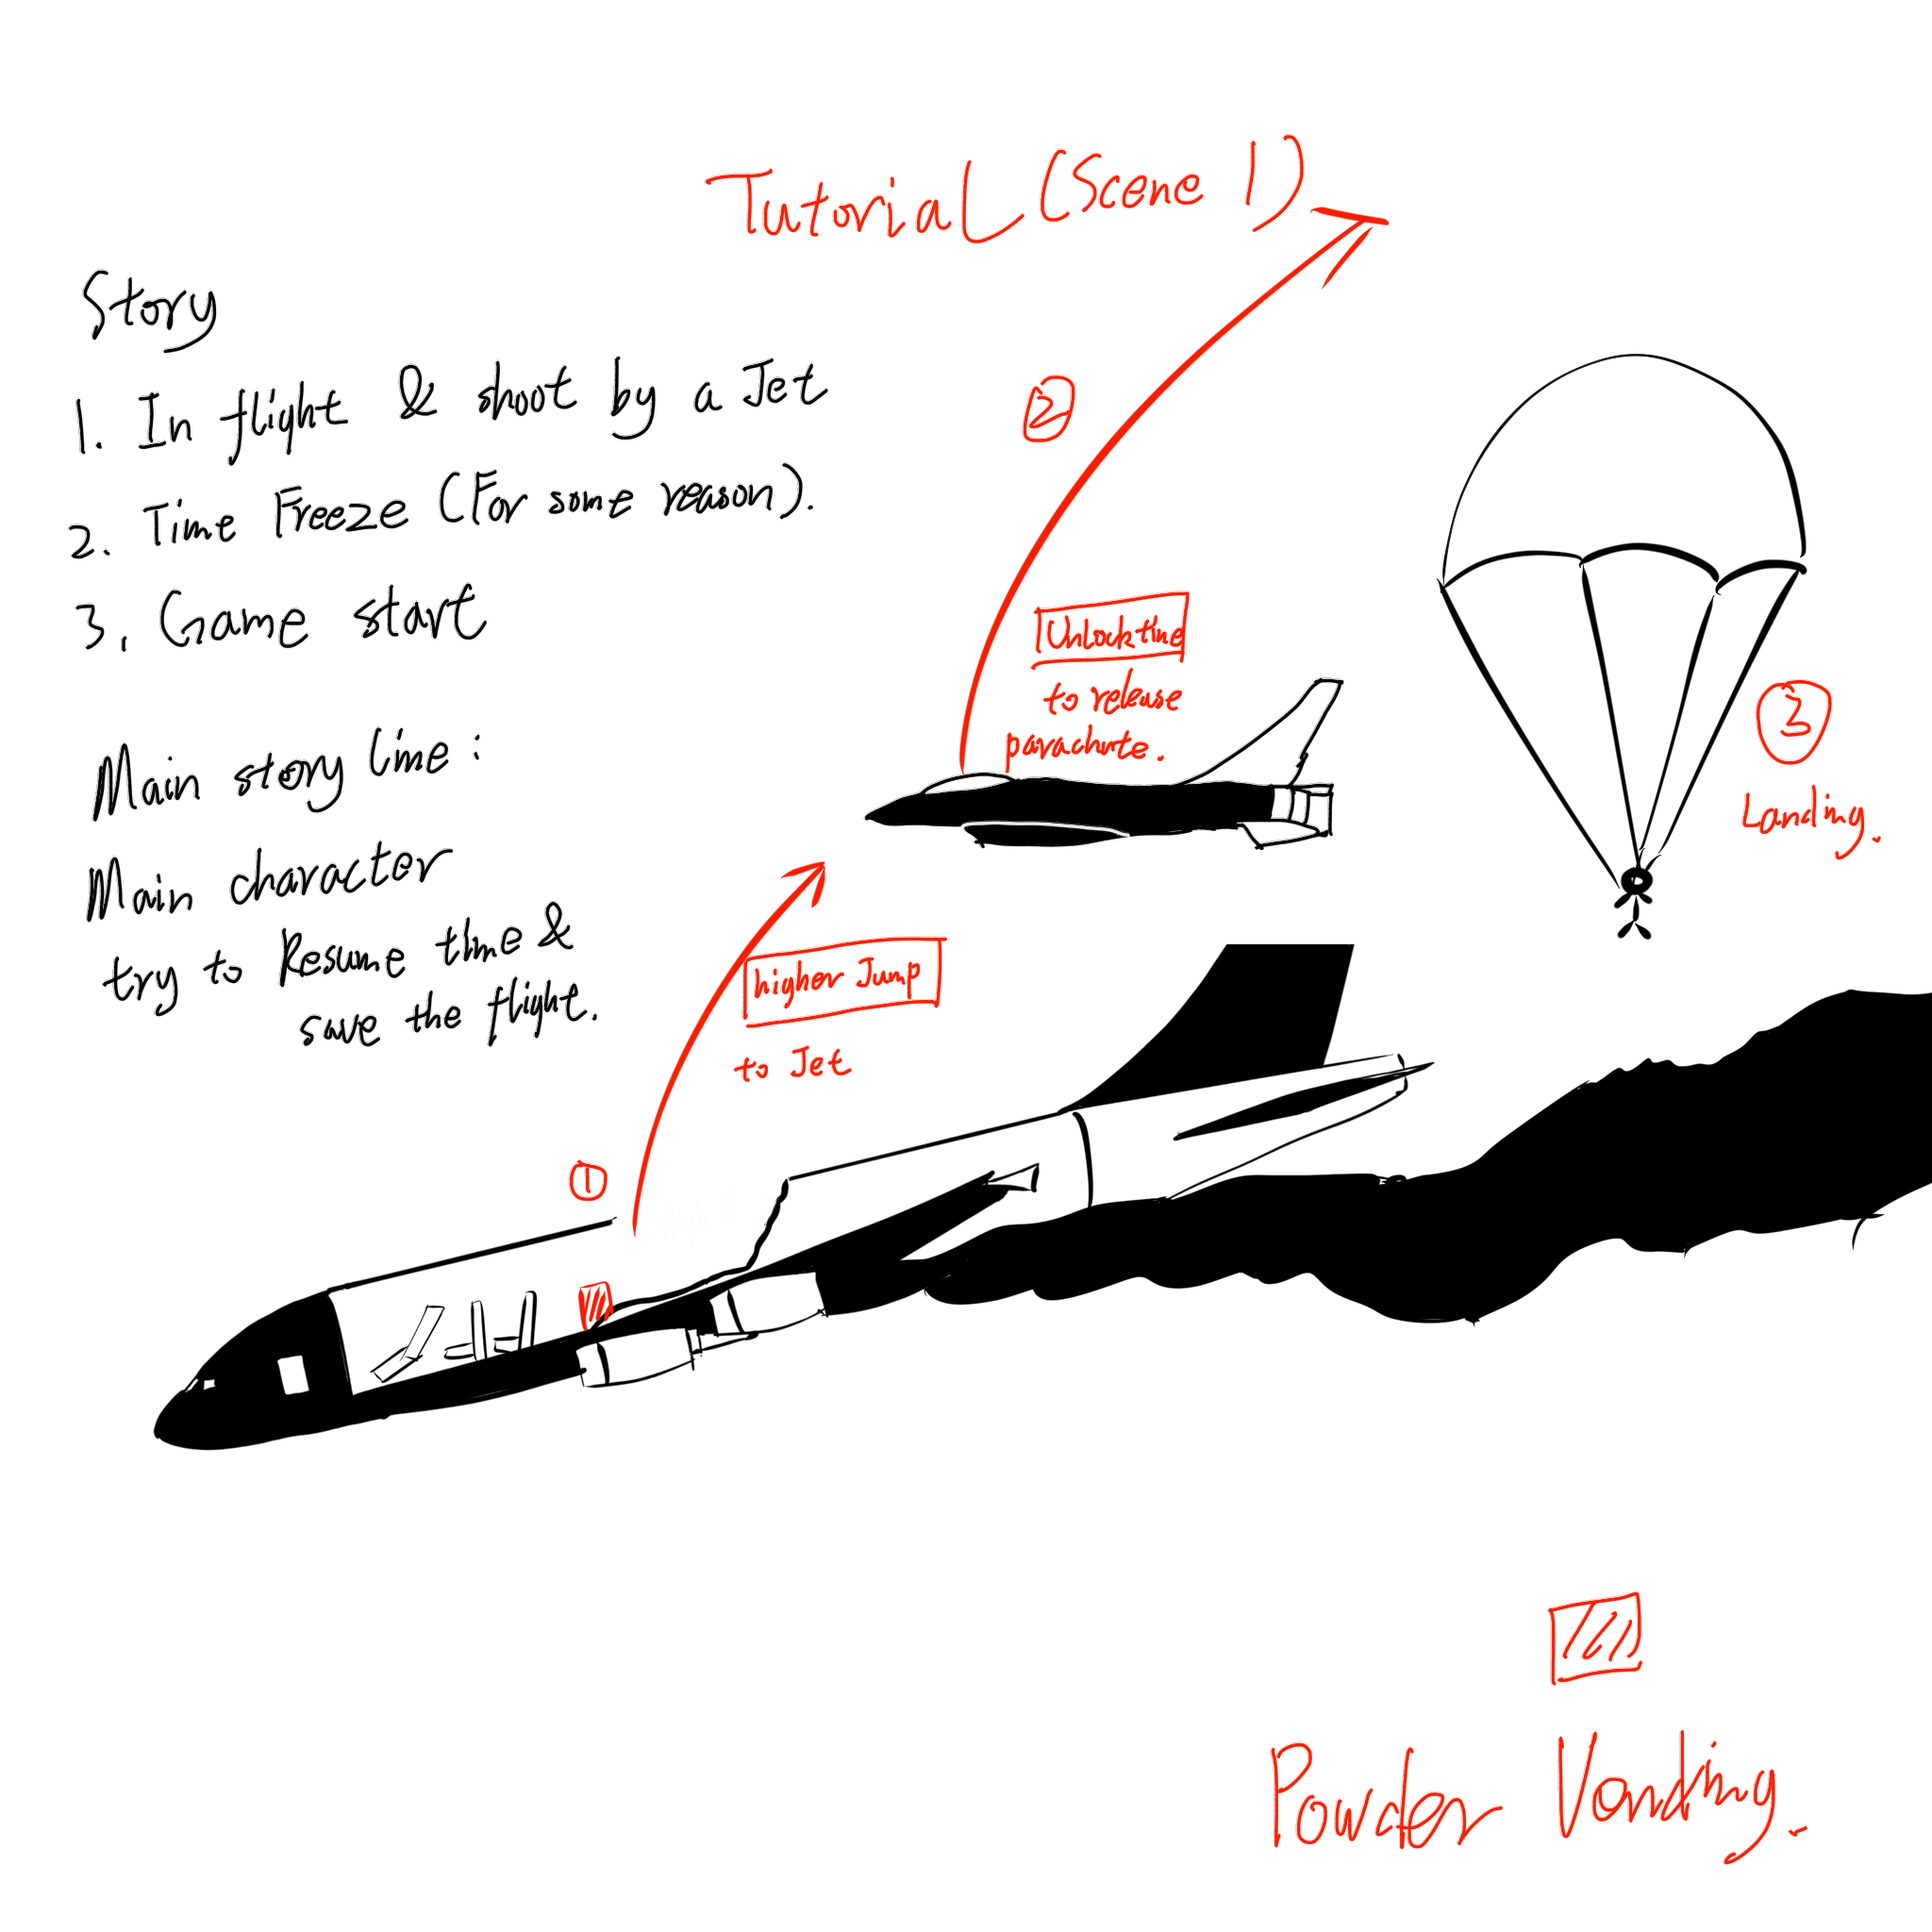 Tutorial (Scene 1)
Story
1. In flight & shoot by a Jet
2. Time Freeze (For some reason).
3. Game start
Main story line:
Main character
try to Resume time &
save the flight.
②
Unlock time
to release
parachute.
③
Landing.
higher Jump
to Jet
①
Powder Vending.